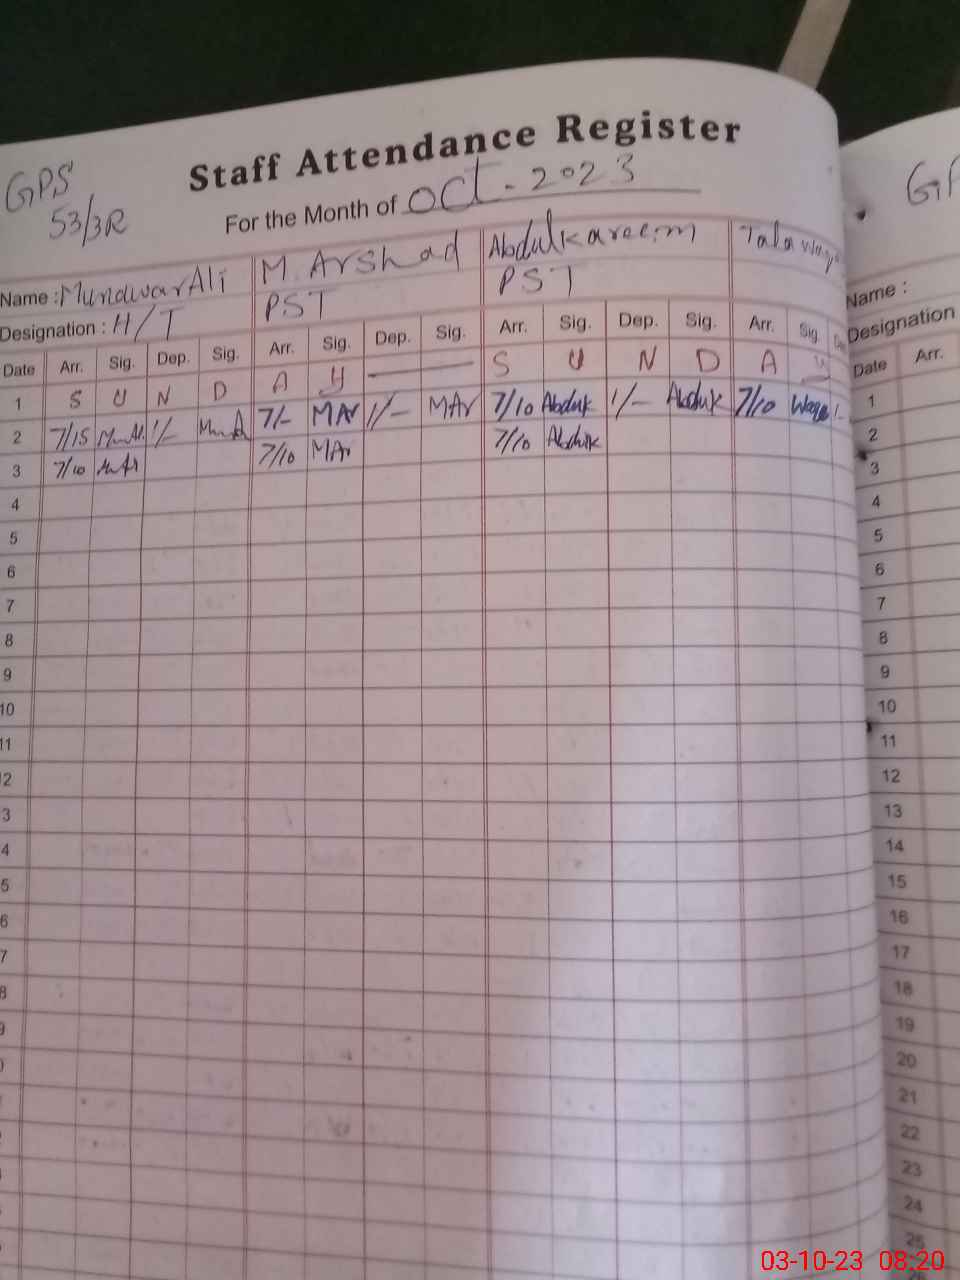 GPS
53/3R
Staff Attendance Register
For the Month of Oct - 2023
Name : Munawar Ali M. Arshad Abdulkareem Tala
Designation : H/T PST PST
Date Arr. Sig. Dep. Sig. Arr. Sig. Dep. Sig. Arr. Sig. Dep. Sig. Arr. Sig.
1 S U N D A Y S U N D A Y
2 7/15 1/- 7/- MAr 1/- MAr 7/10 Abduk 1/- Abduk 7/10 Waqa 1-
3 7/10 7/10 MAr 7/10 Abduk
4
5
6
7
8
9
10
11
2
3
4
5
6
7
8
9
Name :
Designation
Date Arr.
1
2
3
4
5
6
7
8
9
10
11
12
13
14
15
16
17
18
19
20
21
22
23
24
25
03-10-23 08:20